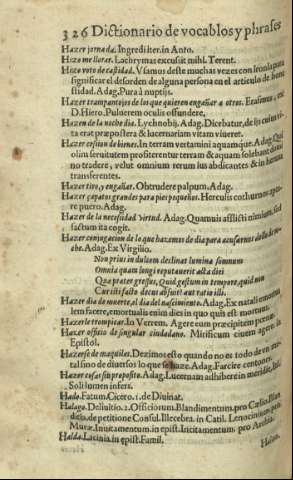 326 Dictionario de vocablos y phrases
Hazer jornada. Ingredi iter. in Anto.
Hizo me llorar. Lachrymas excusit mihi. Terent.
Hizo voto de castidad. Vsamos deste muchas vezes con ironia para
significar el desorden de alguna persona en el articulo de hone
stidad. Adag. Pura à nuptijs.
Hazer trampantojos de los que quieren engañar a otros. Erasmus, ex
D. Hiero. Puluerem oculis offundere,
Hazen de la noche dia. Lychnobij. Adag. Dicebatur, de ijs
ta erat præpostera & lucernariam vitam viueret.
Hazer cession de bienes. In terram vertamini aquamque. Adag.
olim seruitutem profiterentur terram & aquam solebant
no tradere, velut omnium rerum ius abdicantes & in
transferentes.
Hazer tiro, y engañar. Obtrudere palpum. Adag.
Hazer çapatos grandes para pies pequeños. Herculis cothurnos
re puero. Adag.
Hazer de la necessidad virtud. Adag. Quamuis afflicti nimium, sed
factum ita cogit.
Hazer conjugacion de lo que hazemos de dia para acusarnos
che. Adag. Ex Virgilio.
Non prius in dulcem declinat lumina somnum
Omnia quam longi reputauerit acta diei
Quæ præter gressus, Quid gestum in tempore, quid non
Cur isti facto decus absuit aut ratio illi.
Hazer dia de muerte, el dia del nascimiento. Adag. Ex natali
lem facere, emortualis enim dies in quo quis est mortuus.
Hazerle trompicar. In Verrem. Agere eum præcipitem
Hazer officio de singular ciudadano. Mirificum ciuem agere. in
Epistol.
Hazerse de maquilas. Dezimos esto quando no es todo de vn
tal sino de diuersos lo que se haze. Adag. Farcire centones.
Hazer cosas sin proposito. Adag. Lucernam adhibere in meridie,
Soli lumen inferre.
Hado. Fatum. Cicero. 1. de Diuinat.
Halago. Deliuitio. 2. Officiorum. Blandimentum. pro Cælio.
dicia. de petitione Consul. Illecebra. in Catil. Lenocinium. pro
Muræ. Inuitamentum. in epist. Incitamentum. pro Archia.
Halda. Lacinia. in epist. Famil.